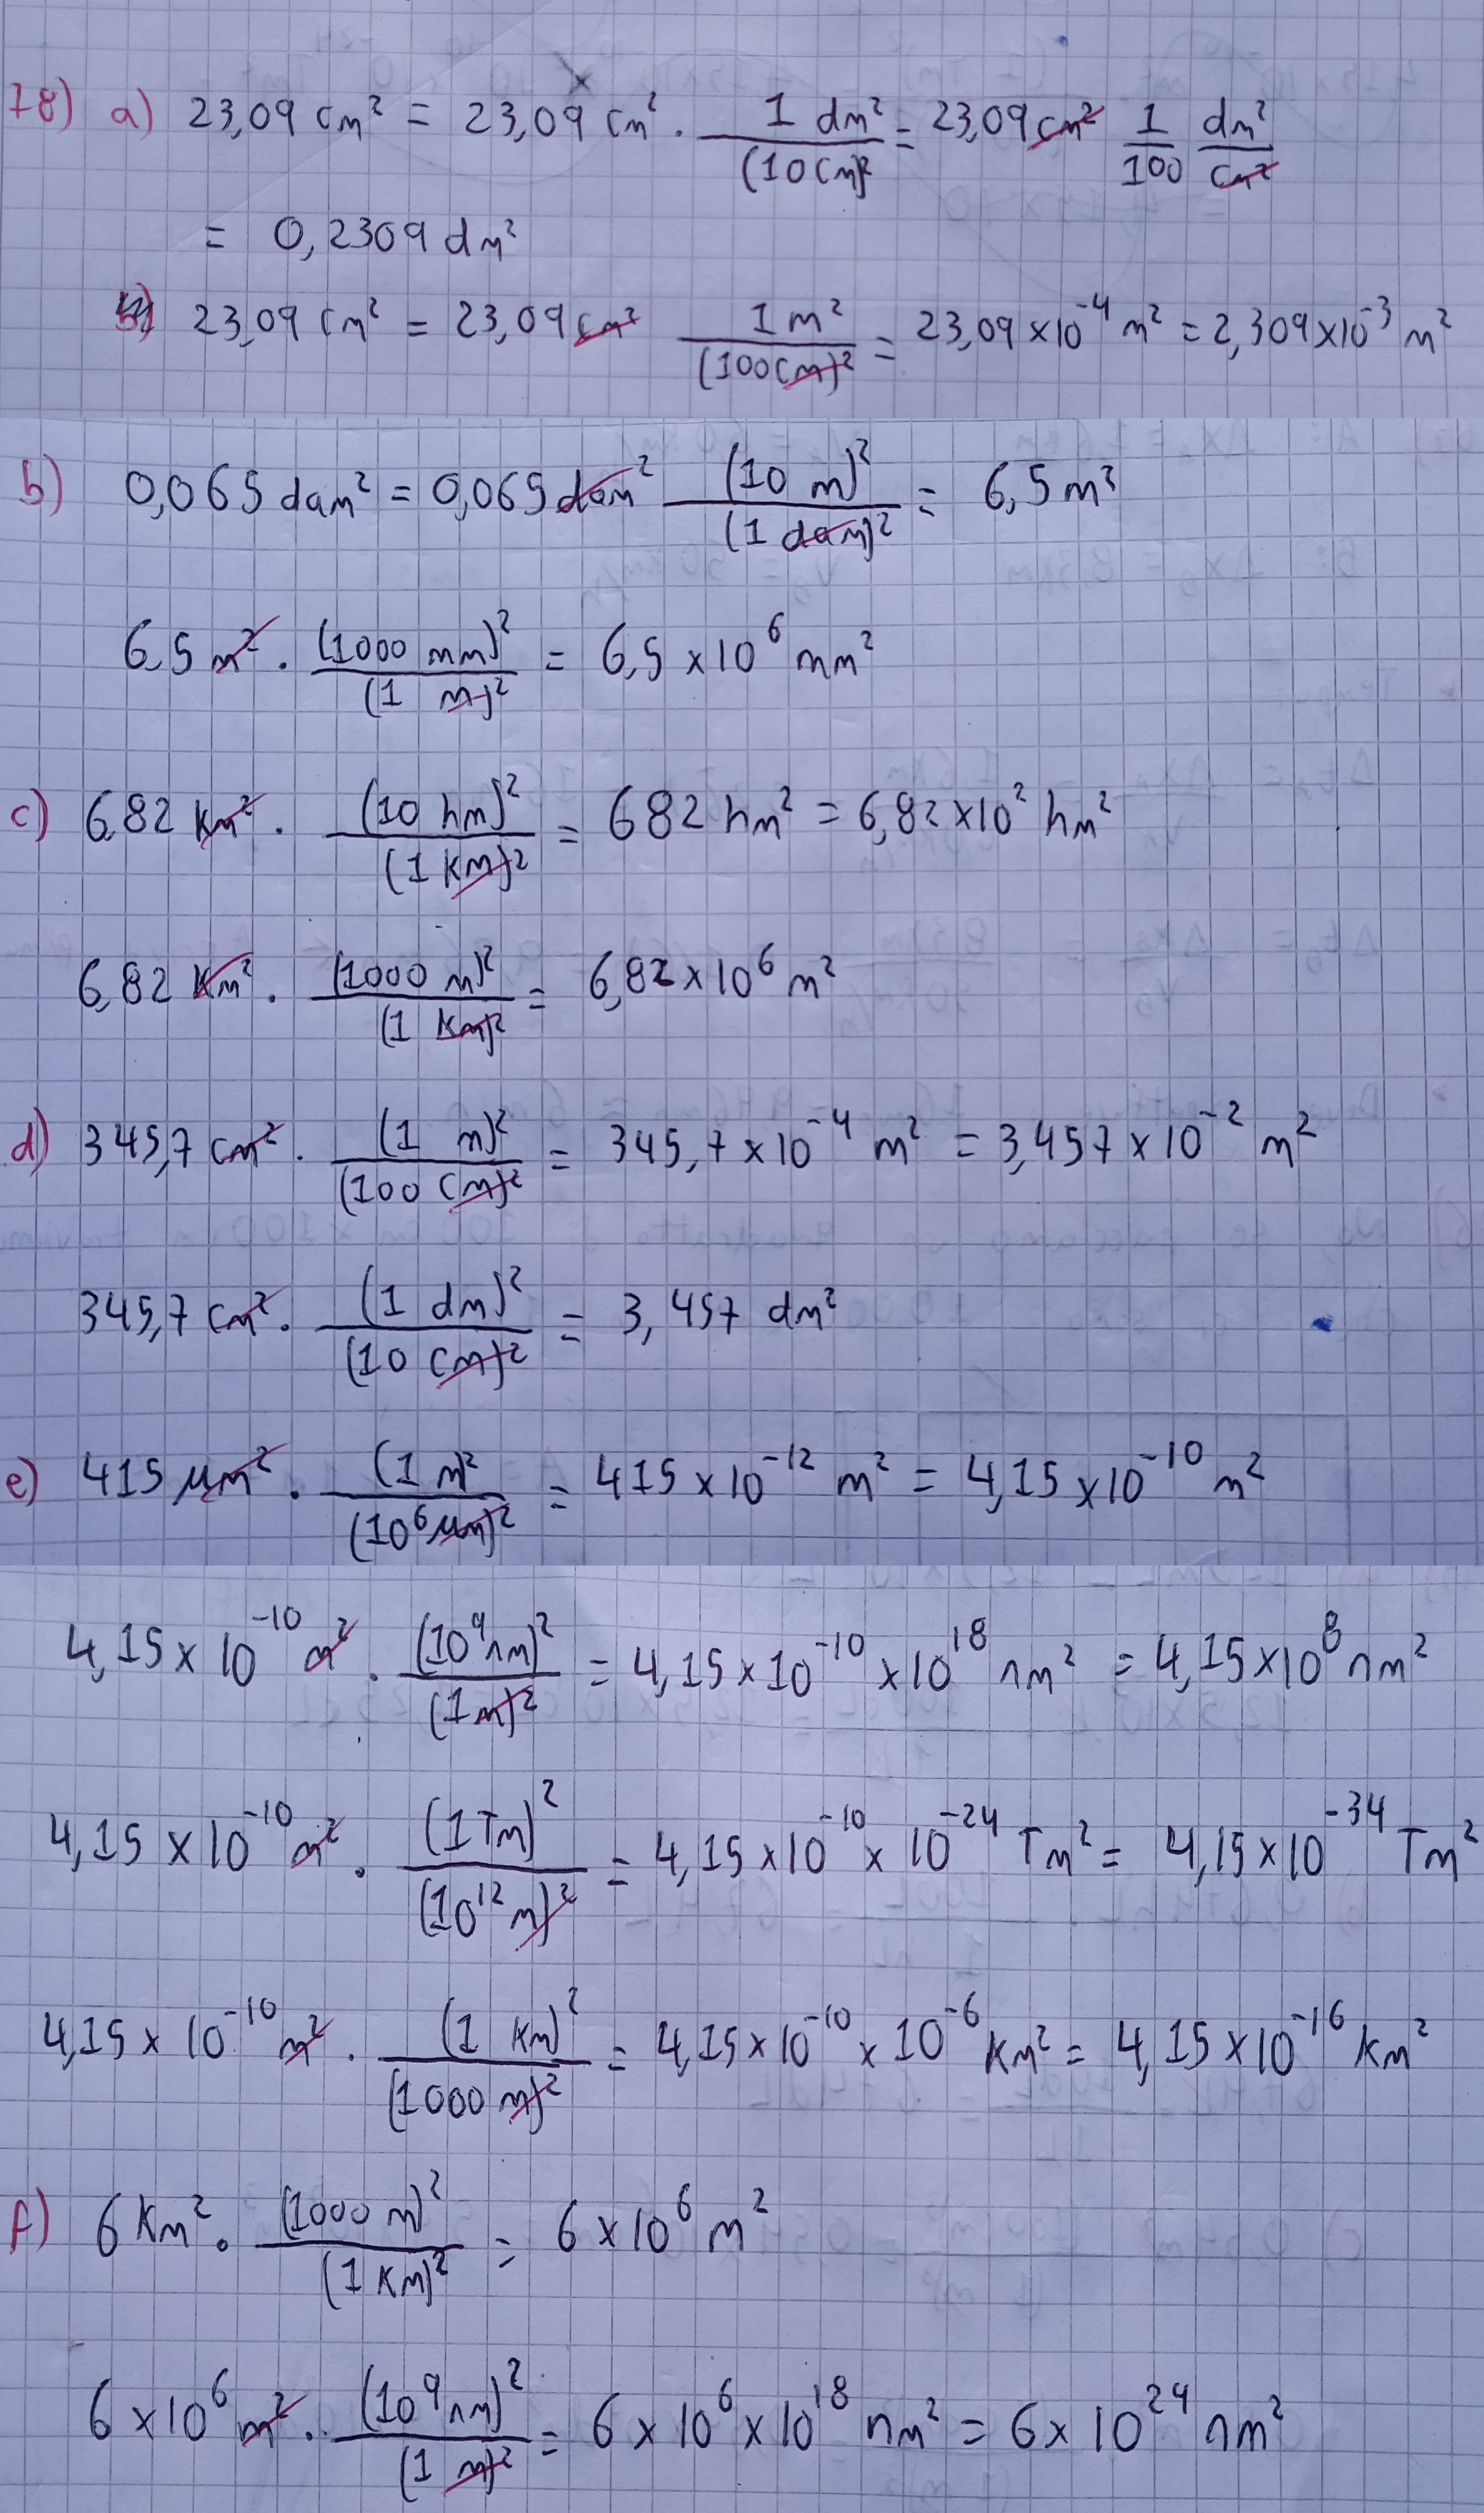 78) a) 23,09 cm² = 23,09 cm² · 1 dm² / (10 cm)² = 23,09 cm² 1/100 dm²/cm²
= 0,2309 dm²
23,09 cm² = 23,09 cm² 1 m² / (100 cm)² = 23,09 × 10⁻⁴ m² = 2,309 × 10⁻³ m²
b) 0,065 dam² = 0,065 dam² (10 m)² / (1 dam)² = 6,5 m²
6,5 m² · (1000 mm)² / (1 m)² = 6,5 × 10⁶ mm²
c) 6,82 km² · (10 hm)² / (1 km)² = 682 hm² = 6,82 × 10² hm²
6,82 km² · (1000 m)² / (1 km)² = 6,82 × 10⁶ m²
d) 345,7 cm² · (1 m)² / (100 cm)² = 345,7 × 10⁻⁴ m² = 3,457 × 10⁻² m²
345,7 cm² · (1 dm)² / (10 cm)² = 3,457 dm²
e) 415 µm² · (1 m)² / (10⁶ µm)² = 415 × 10⁻¹² m² = 4,15 × 10⁻¹⁰ m²
4,15 × 10⁻¹⁰ m² · (10⁹ nm)² / (1 m)² = 4,15 × 10⁻¹⁰ × 10¹⁸ nm² = 4,15 × 10⁸ nm²
4,15 × 10⁻¹⁰ m² · (1 Tm)² / (10¹² m)² = 4,15 × 10⁻¹⁰ × 10⁻²⁴ Tm² = 4,15 × 10⁻³⁴ Tm²
4,15 × 10⁻¹⁰ m² · (1 km)² / (1000 m)² = 4,15 × 10⁻¹⁰ × 10⁻⁶ km² = 4,15 × 10⁻¹⁶ km²
f) 6 km² · (1000 m)² / (1 km)² = 6 × 10⁶ m²
6 × 10⁶ m² · (10⁹ nm)² / (1 m)² = 6 × 10⁶ × 10¹⁸ nm² = 6 × 10²⁴ nm²